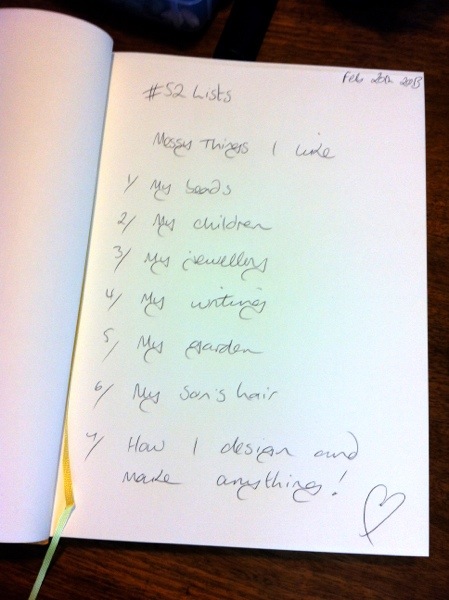 Feb 20th 2013
#52 Lists
Messy Things I like
1/ My beads
2/ My children
3/ My jewellery
4/ My writing
5/ My garden
6/ My son's hair
7/ How I design and
make anything!